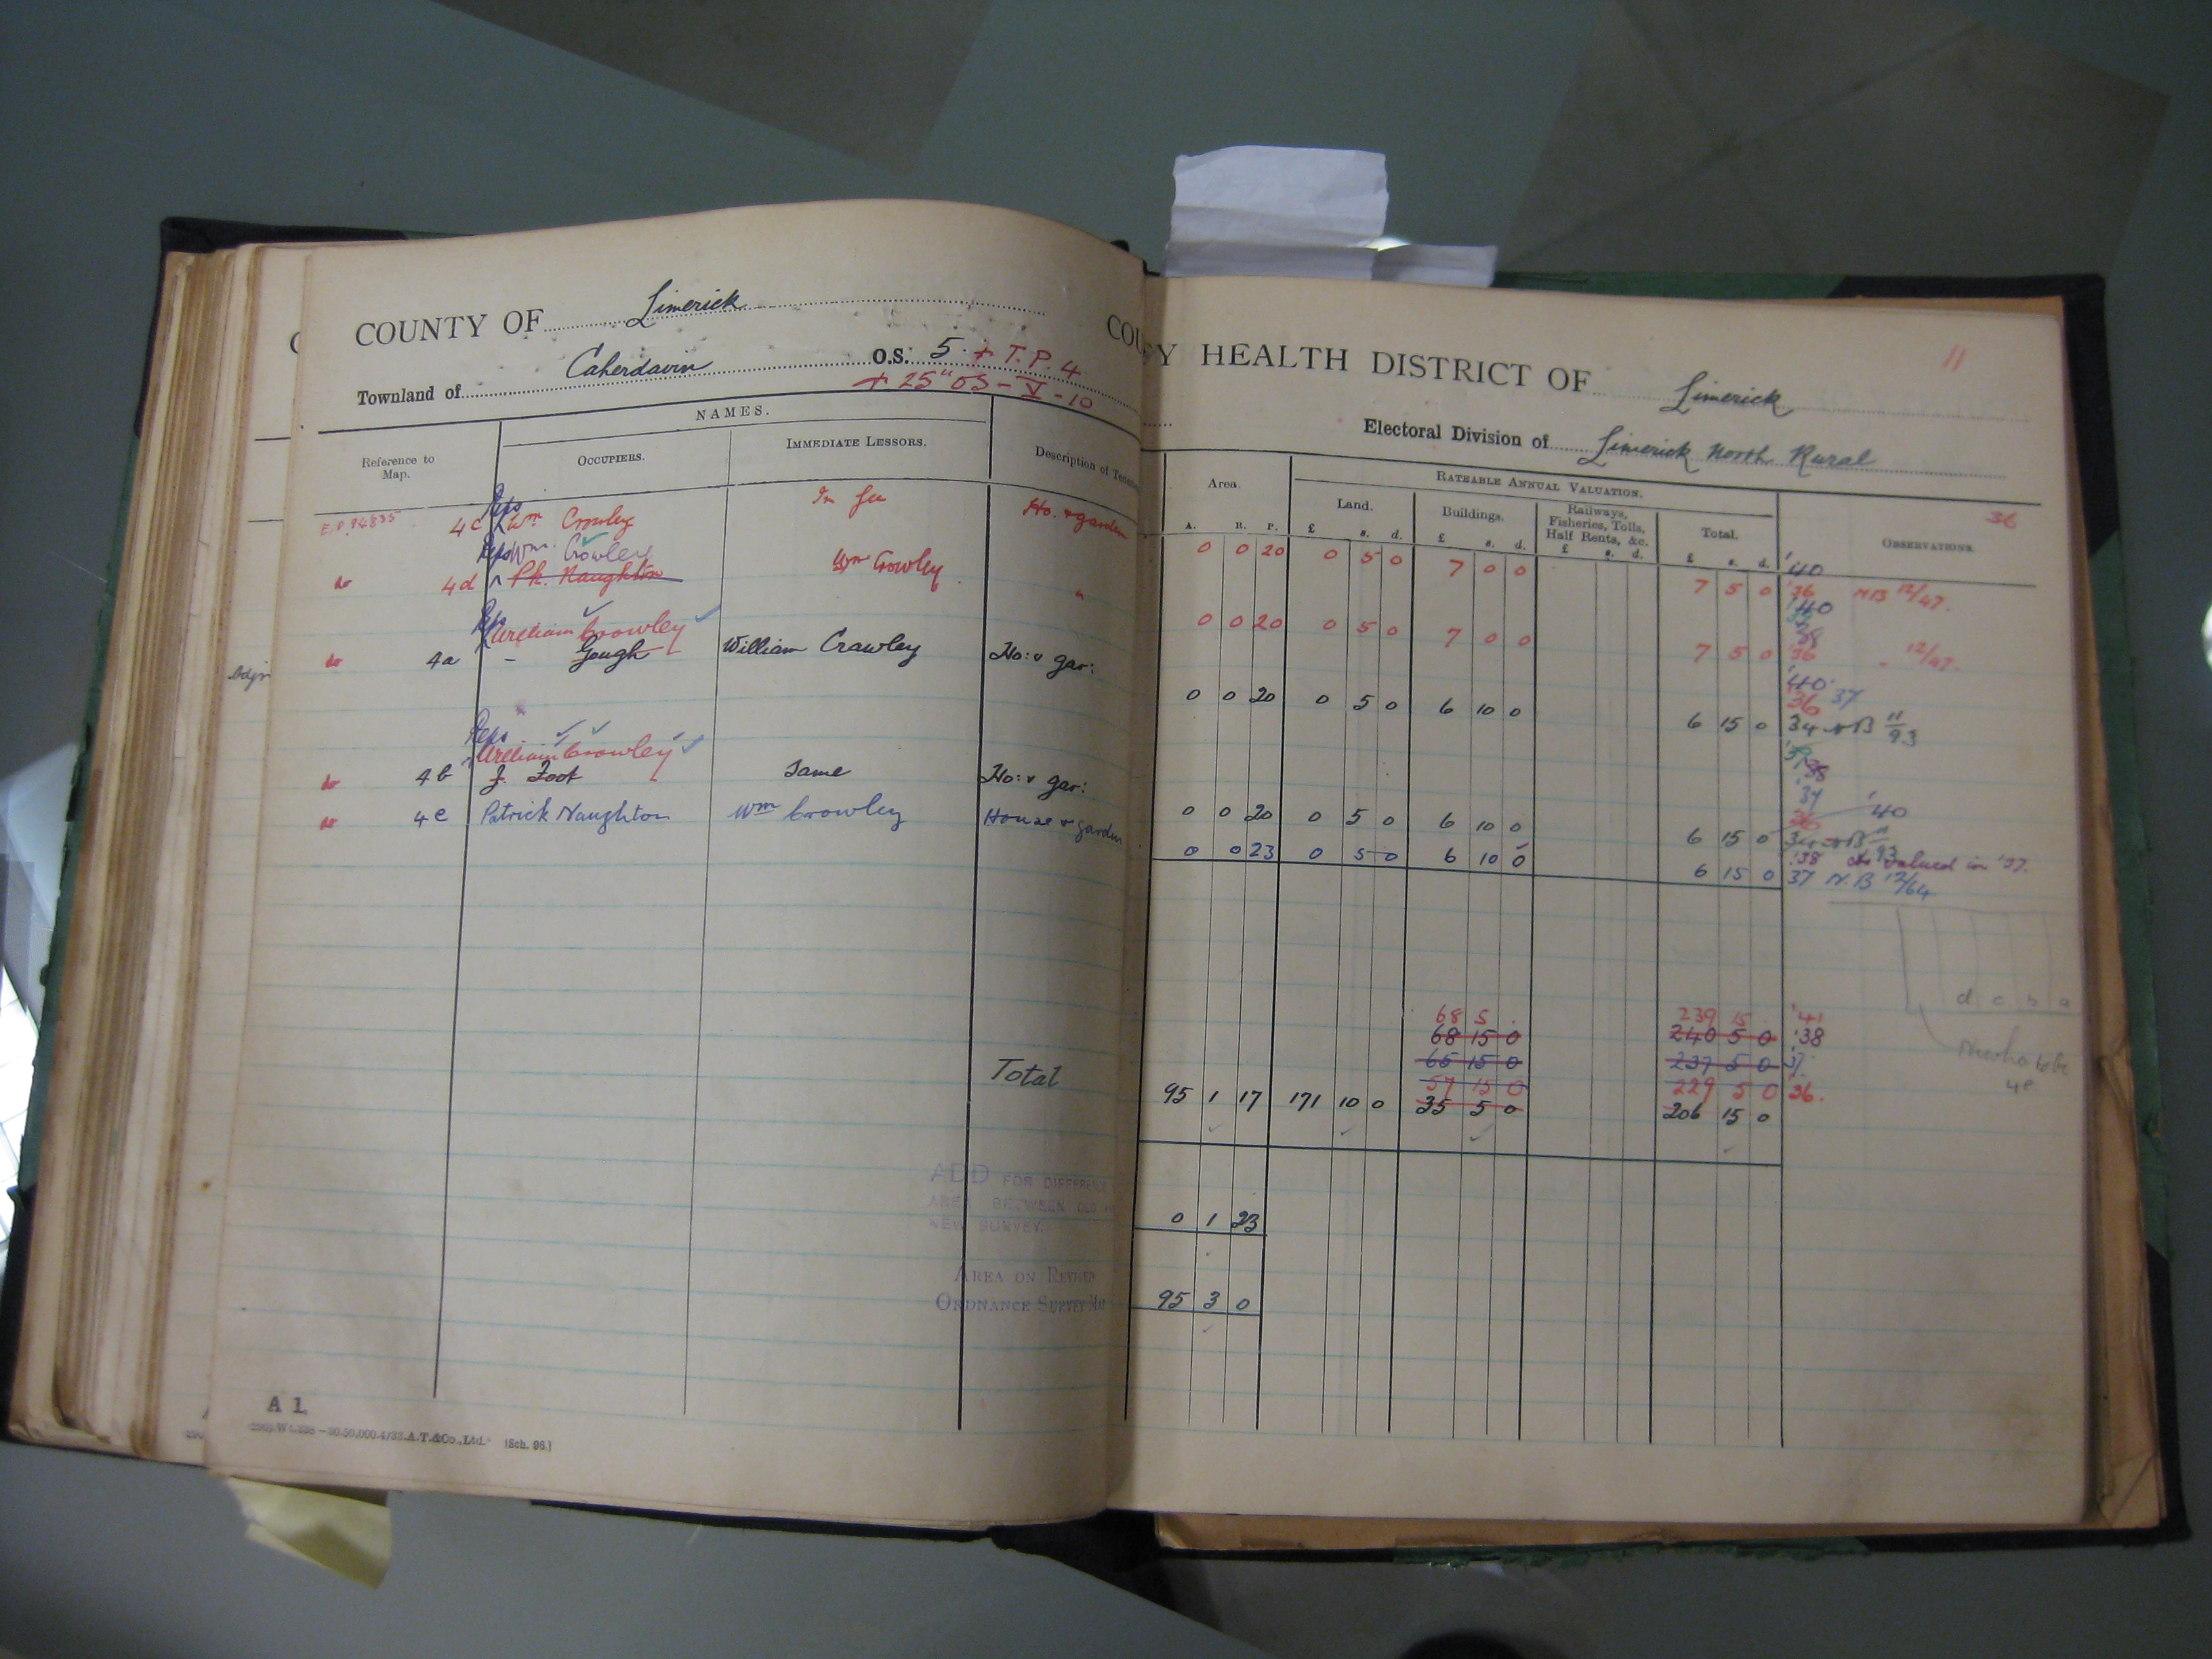 COUNTY OF Limerick
Townland of Caherdavin O.S. 5 + T.P. 4
+ 25" OS - V - 10
NAMES.
Reference to Map.
OCCUPIERS.
IMMEDIATE LESSORS.
Description of
Reps
E.P. 94835 4c Wm Crowley In fee Ho. & garden
Reps Wm. Crowley
do 4d Pk. Naughton Wm Crowley "
Reps
William Crowley
do 4a - Gough William Crawley Ho: & gar:
Reps
William Crowley
do 4b J. Foot Same Ho: & gar:
do 4e Patrick Naughton Wm Crowley House & garden
Total
ADD FOR DIFFERENCE
AREA BETWEEN OLD
NEW SURVEY.
AREA ON REVISED
ORDNANCE SURVEY MAP
A 1.
(Sch. 96.)
COU
Y HEALTH DISTRICT OF Limerick
11
Electoral Division of Limerick North Rural
Area.
RATEABLE ANNUAL VALUATION.
Land.
Buildings.
Railways, Fisheries, Tolls, Half Rents, &c.
Total.
36
OBSERVATIONS.
A. R. P. £ s. d. £ s. d. £ s. d. £ s. d.
'40
0 0 20 0 5 0 7 0 0 7 5 0 '36 NB 12/47.
'40
'38
0 0 20 0 5 0 7 0 0 7 5 0 '36 " 12/47.
'40
'36 37
0 0 20 0 5 0 6 10 0 6 15 0 34 NB 11/93
'39
'38
'37 '40
36
0 0 20 0 5 0 6 10 0 6 15 0 34 NB 11/93
'38 valued in '37.
0 0 23 0 5 0 6 10 0 6 15 0 37 N.B 12/64
d c b a
68 5 . 239 15 . '41
68 15 0 240 5 0 '38
65 15 0 237 5 0 37.
57 15 0 229 5 0 36.
95 1 17 171 10 0 35 5 0 206 15 0
4e
0 1 23
95 3 0